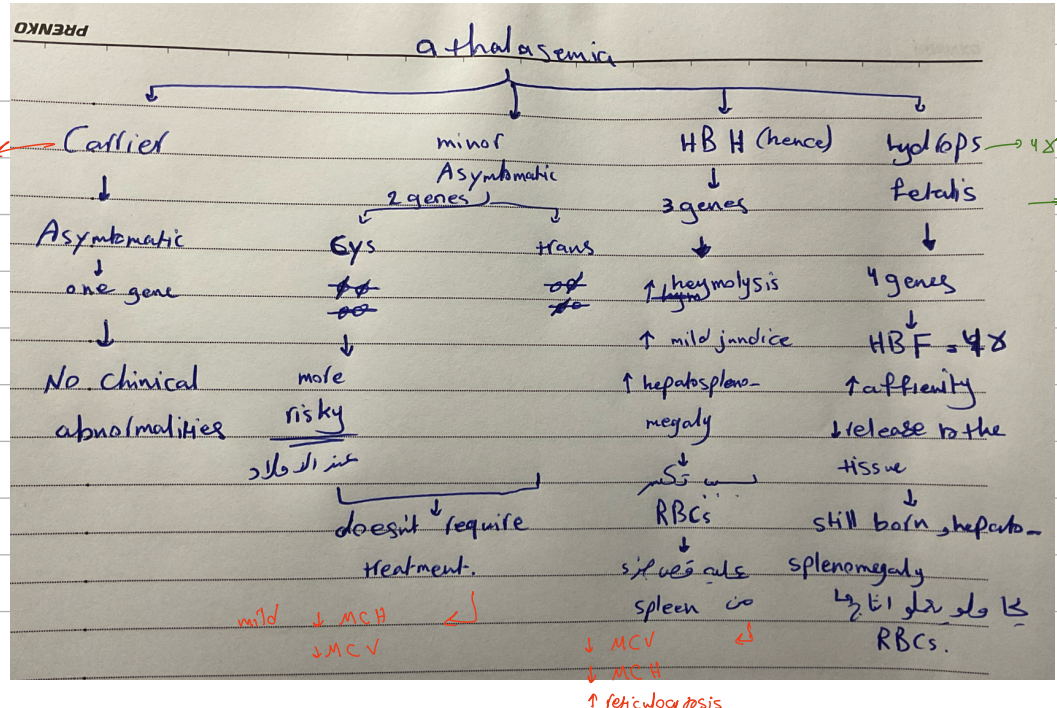 PRENKO
α thalasemia
Carrier
Asymtomatic
one gene
No. Chinical
abnormalities
minor
Asymtomatic
2 genes
Cys
trans
more
risky
عند الاولاد
doesn't require
treatment.
mild ↓ MCH
↓ MCV
HB H (hence)
3 genes
↑ heymolysis
↑ mild jundice
↑ hepatospleno-
megaly
بسبب تكسر
RBCs
عليه قص جزء
من spleen
↓ MCV
↓ MCH
↑ reticulocytosis
hydrops → 4γ
fetalis
4 genes
HBF = 4γ
↑ affienity
↓ release to the
tissue
still born, hepato-
splenomegaly
RBCs.